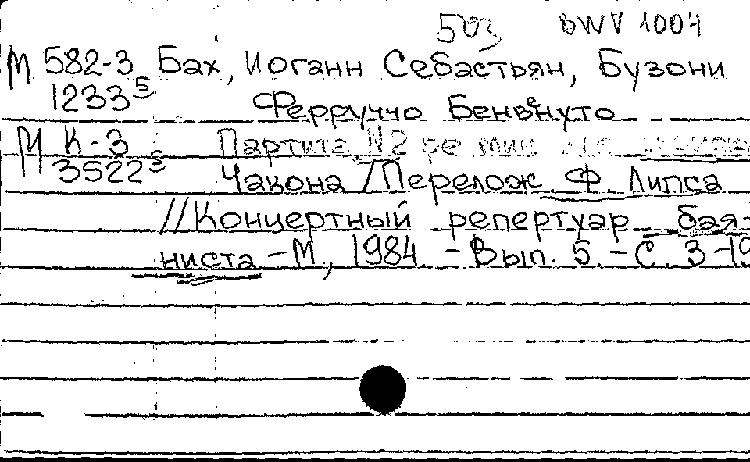 503 BWV 1004
М 582-3 Бах, Иоганн Себастьян, Бузони
1233⁵ Ферруччо Бенвенуто
М К-3 Партита №2 ре мин
3522⁵ Чакона / Перелож Ф Липса
// Концертный репертуар бая-
ниста - М, 1984 - Вып. 5. - С. 3-19